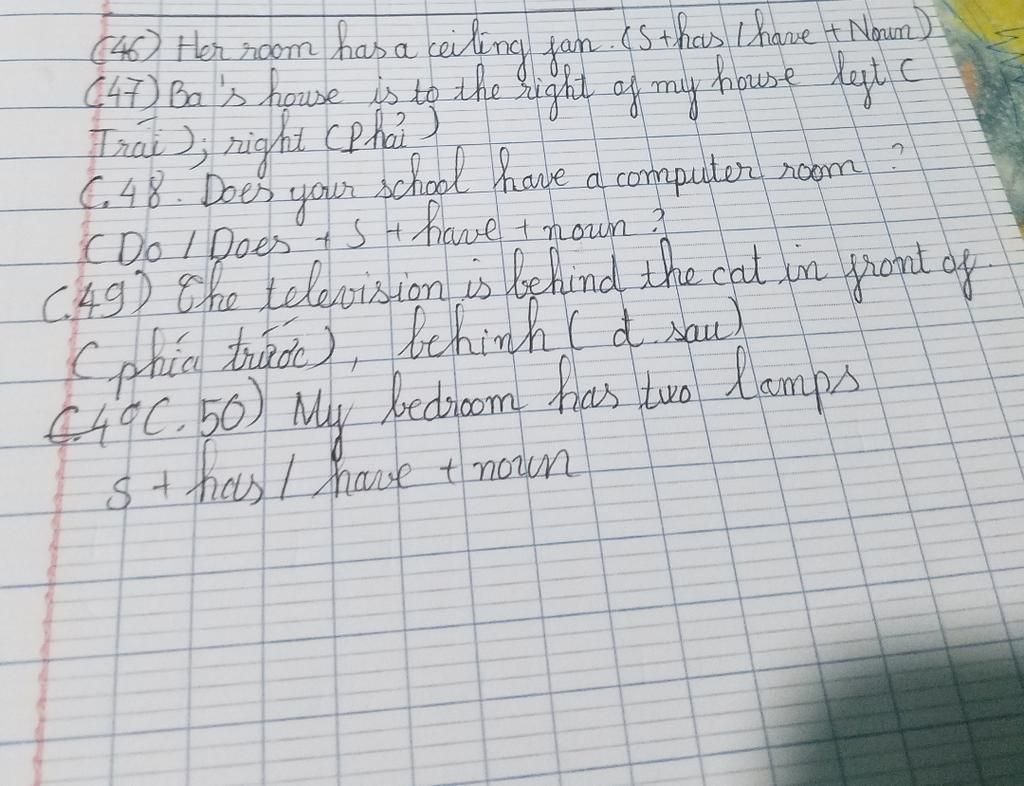 (46) Her room has a ceiling fan. (S+has / have + Noun)
(47) Ba's house is to the right of my house left (
Trái); right (Phải)
C.48. Does your school have a computer room ?
(Do / Does + S + have + noun ?
C.49) The television is behind the cat in front of
(phía trước), behinh (đ. sau)
C.50) My bedroom has two lamps
S + has / have + noun